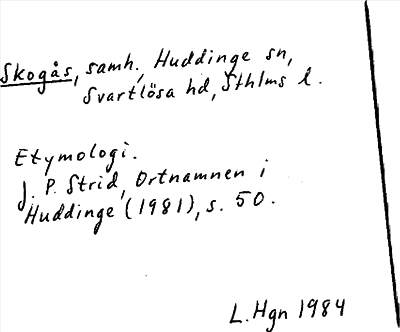 Skogås, samh., Huddinge sn,
Svartlösa hd, Sthlms l.
Etymologi.
J. P. Strid, Ortnamnen i
Huddinge (1981), s. 50.
L. Hgn 1984